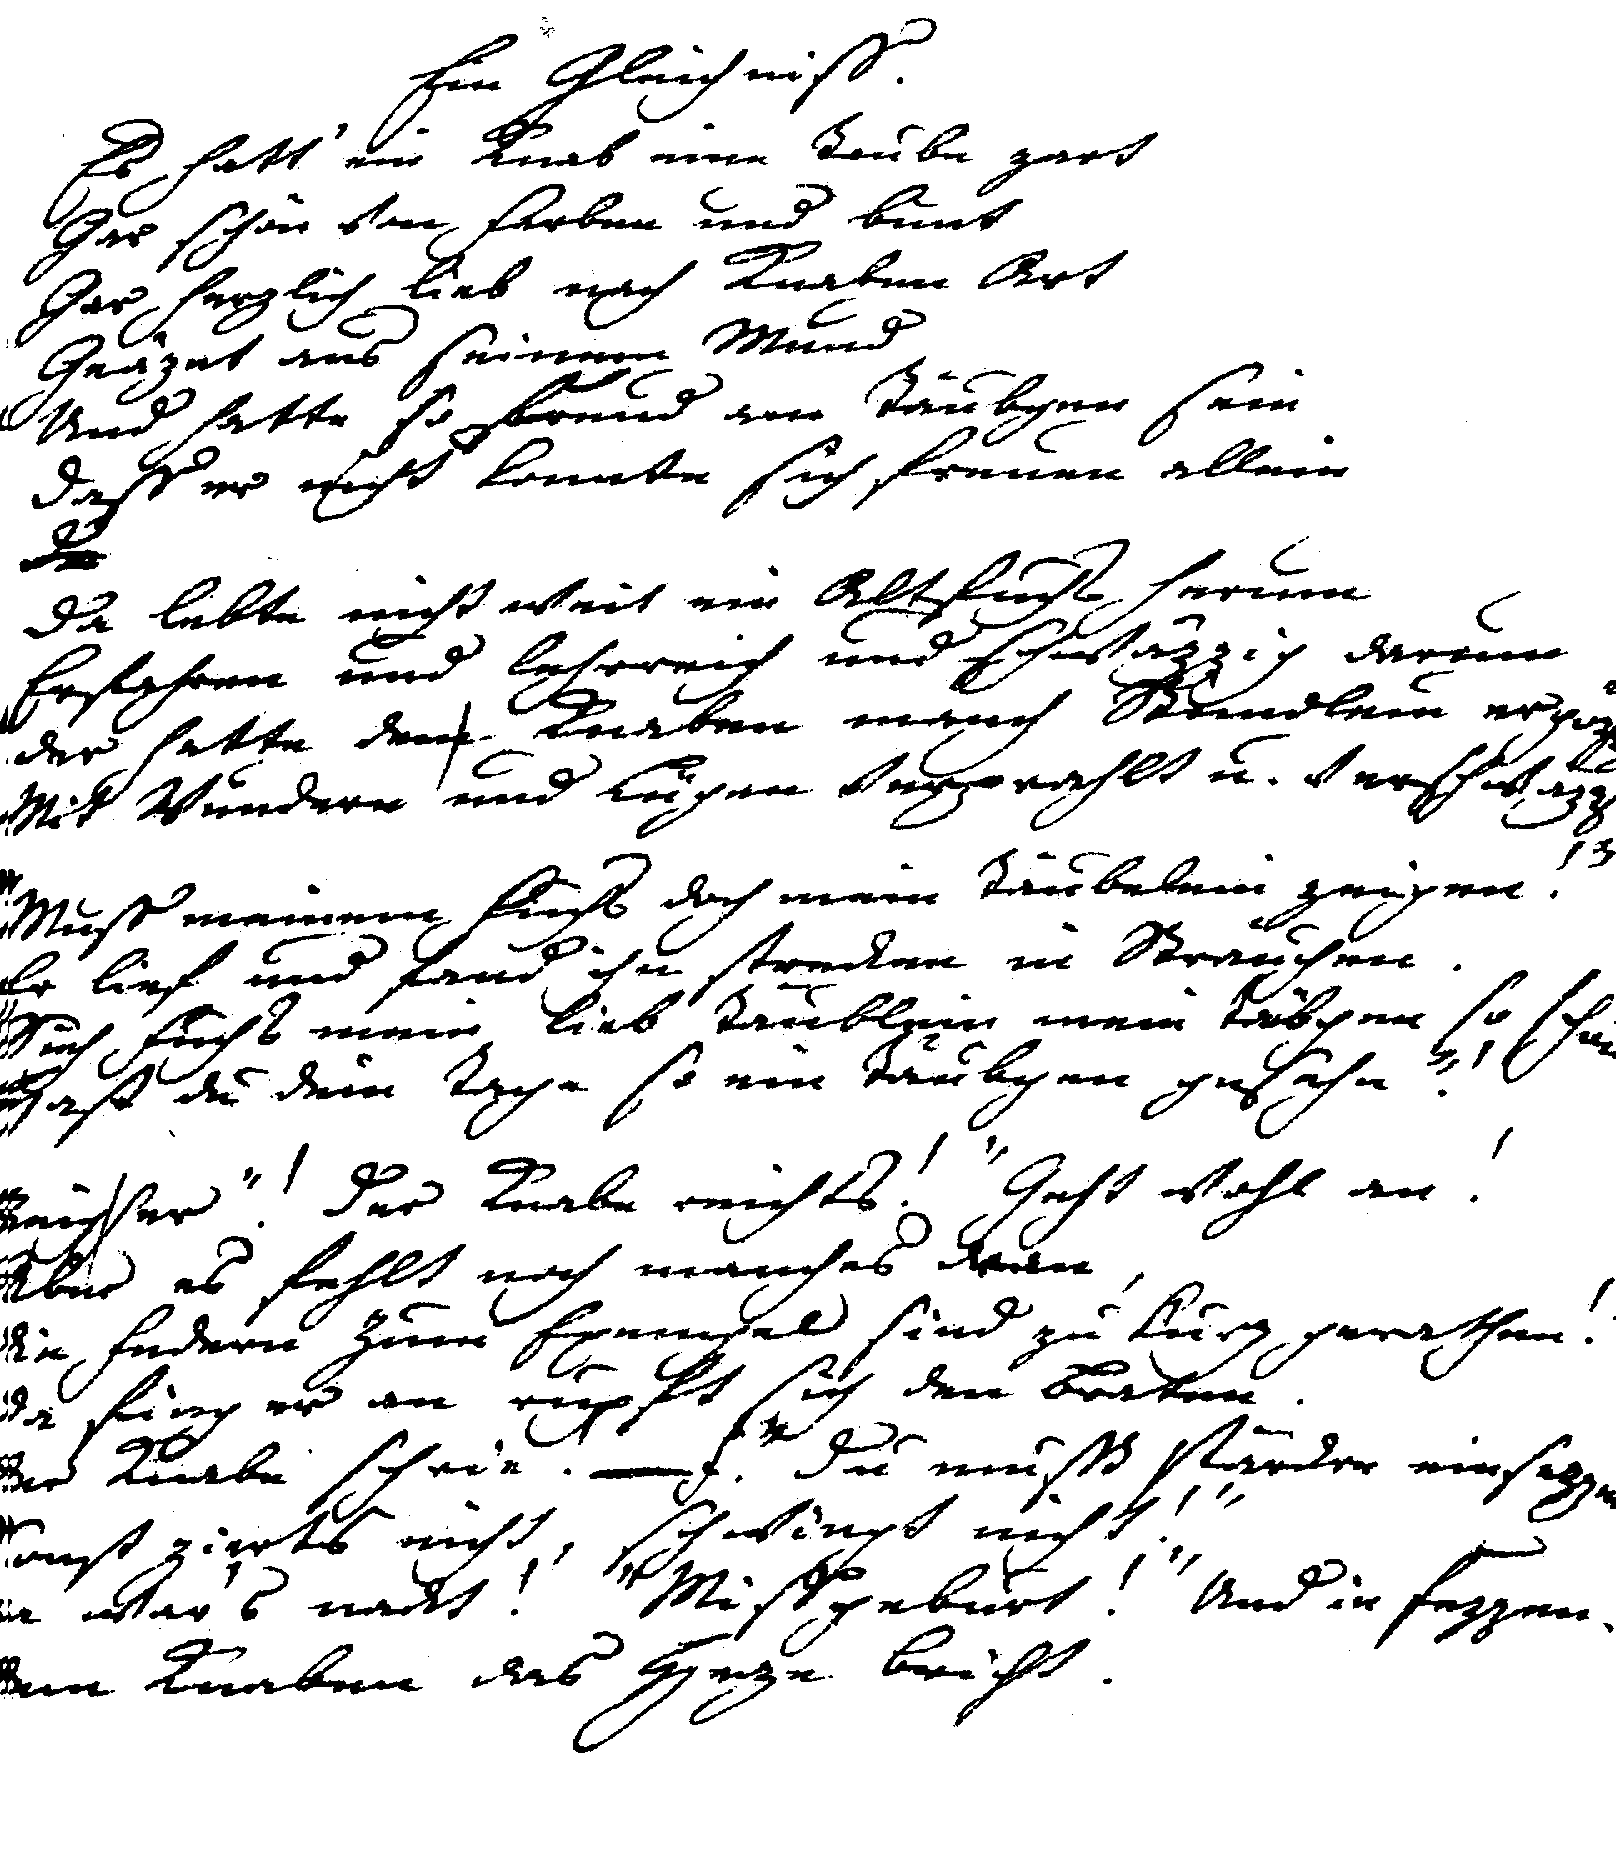 Ein Gleichniss.
Es hatt' ein Knab eine Taube zart
Gar schön von Farben und bunt
Gar herzlich lieb nach Knaben Art
Geäzet aus seinem Mund
Und hatte so Freud am Täubgen sein
dass er nicht konnte sich freuen allein
da lebte nicht weit ein Altfuchs herum
Erfahren und lehrreich und schwäzzig darum
der hatte dem Knaben manch Stündlein
Mit Wundern und Lügen verprahlt u.
Muss meinem Fuchs doch mein Täubelein zeigen!
Er lief und fand ihn strecken in Sträuchen.
Sieh Fuchs mein lieb Täublein mein Täubgen so schön
Hast du dein Tage so ein Täubgen gesehn?"!
Zeig her"! Der Knabe reichts! "Geht wohl an!
Aber es fehlt noch manches dran,
die Federn zum Exempel sind zu kurz gerathen!
da fing er an rupft sich den Braten.
der Knabe schrie. "Du musst stärcker einsezzen
sonst zierts nicht, schwingt nicht!"
da war's nackt! "Missgeburt!" Und in Fezzen.
dem Knaben das Herze bricht.